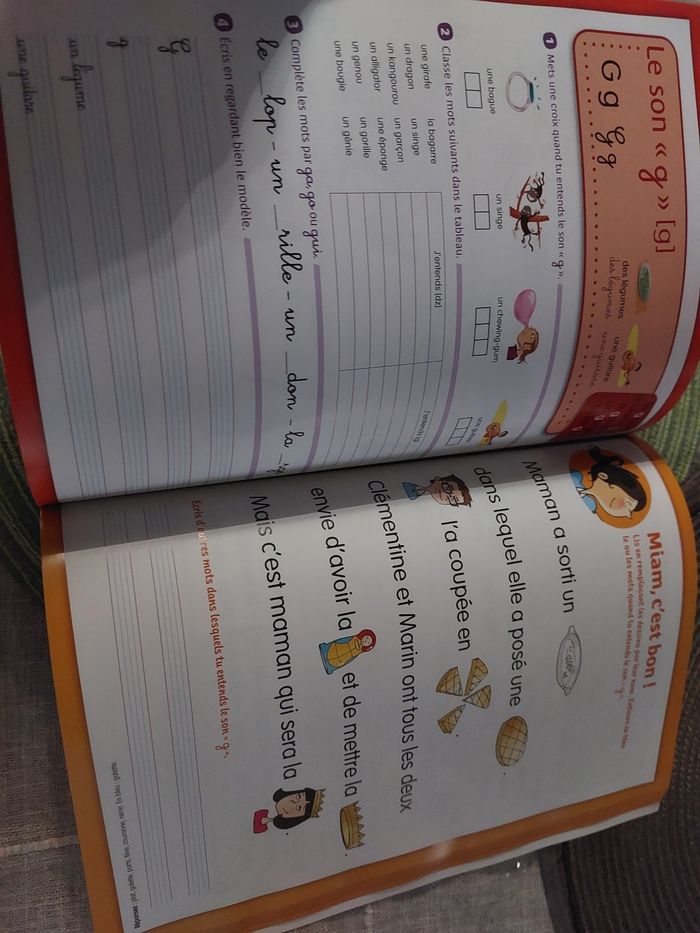 Le son « g » [g]
G g G g
des légumes
des légumes
une guitare
une guitare
1 Mets une croix quand tu entends le son « g ».
une bague
un singe
un chewing-gum
une guitare
2 Classe les mots suivants dans le tableau.
une girafe
la bagarre
un dragon
un singe
un kangourou
un garçon
un alligator
une éponge
un genou
un gorille
une bougie
un génie
J'entends (dz)
J'entends (g
3 Complète les mots par ga, go ou gui.
le __ lop - un __ rille - un __ don - la
4 Écris en regardant bien le modèle.
G
g
un légume
une guitare
Miam, c'est bon !
Lis en remplaçant les dessins par leur nom. Entoure en bleu
le ou les mots quand tu entends le son « g ».
Maman a sorti un
dans lequel elle a posé une .
l'a coupée en .
Clémentine et Marin ont tous les deux
envie d'avoir la et de mettre la .
Mais c'est maman qui sera la .
Écris d'autres mots dans lesquels tu entends le son « g ».
Réponses : plat, galette, parts, fève, couronne, reine. En bleu : galette.